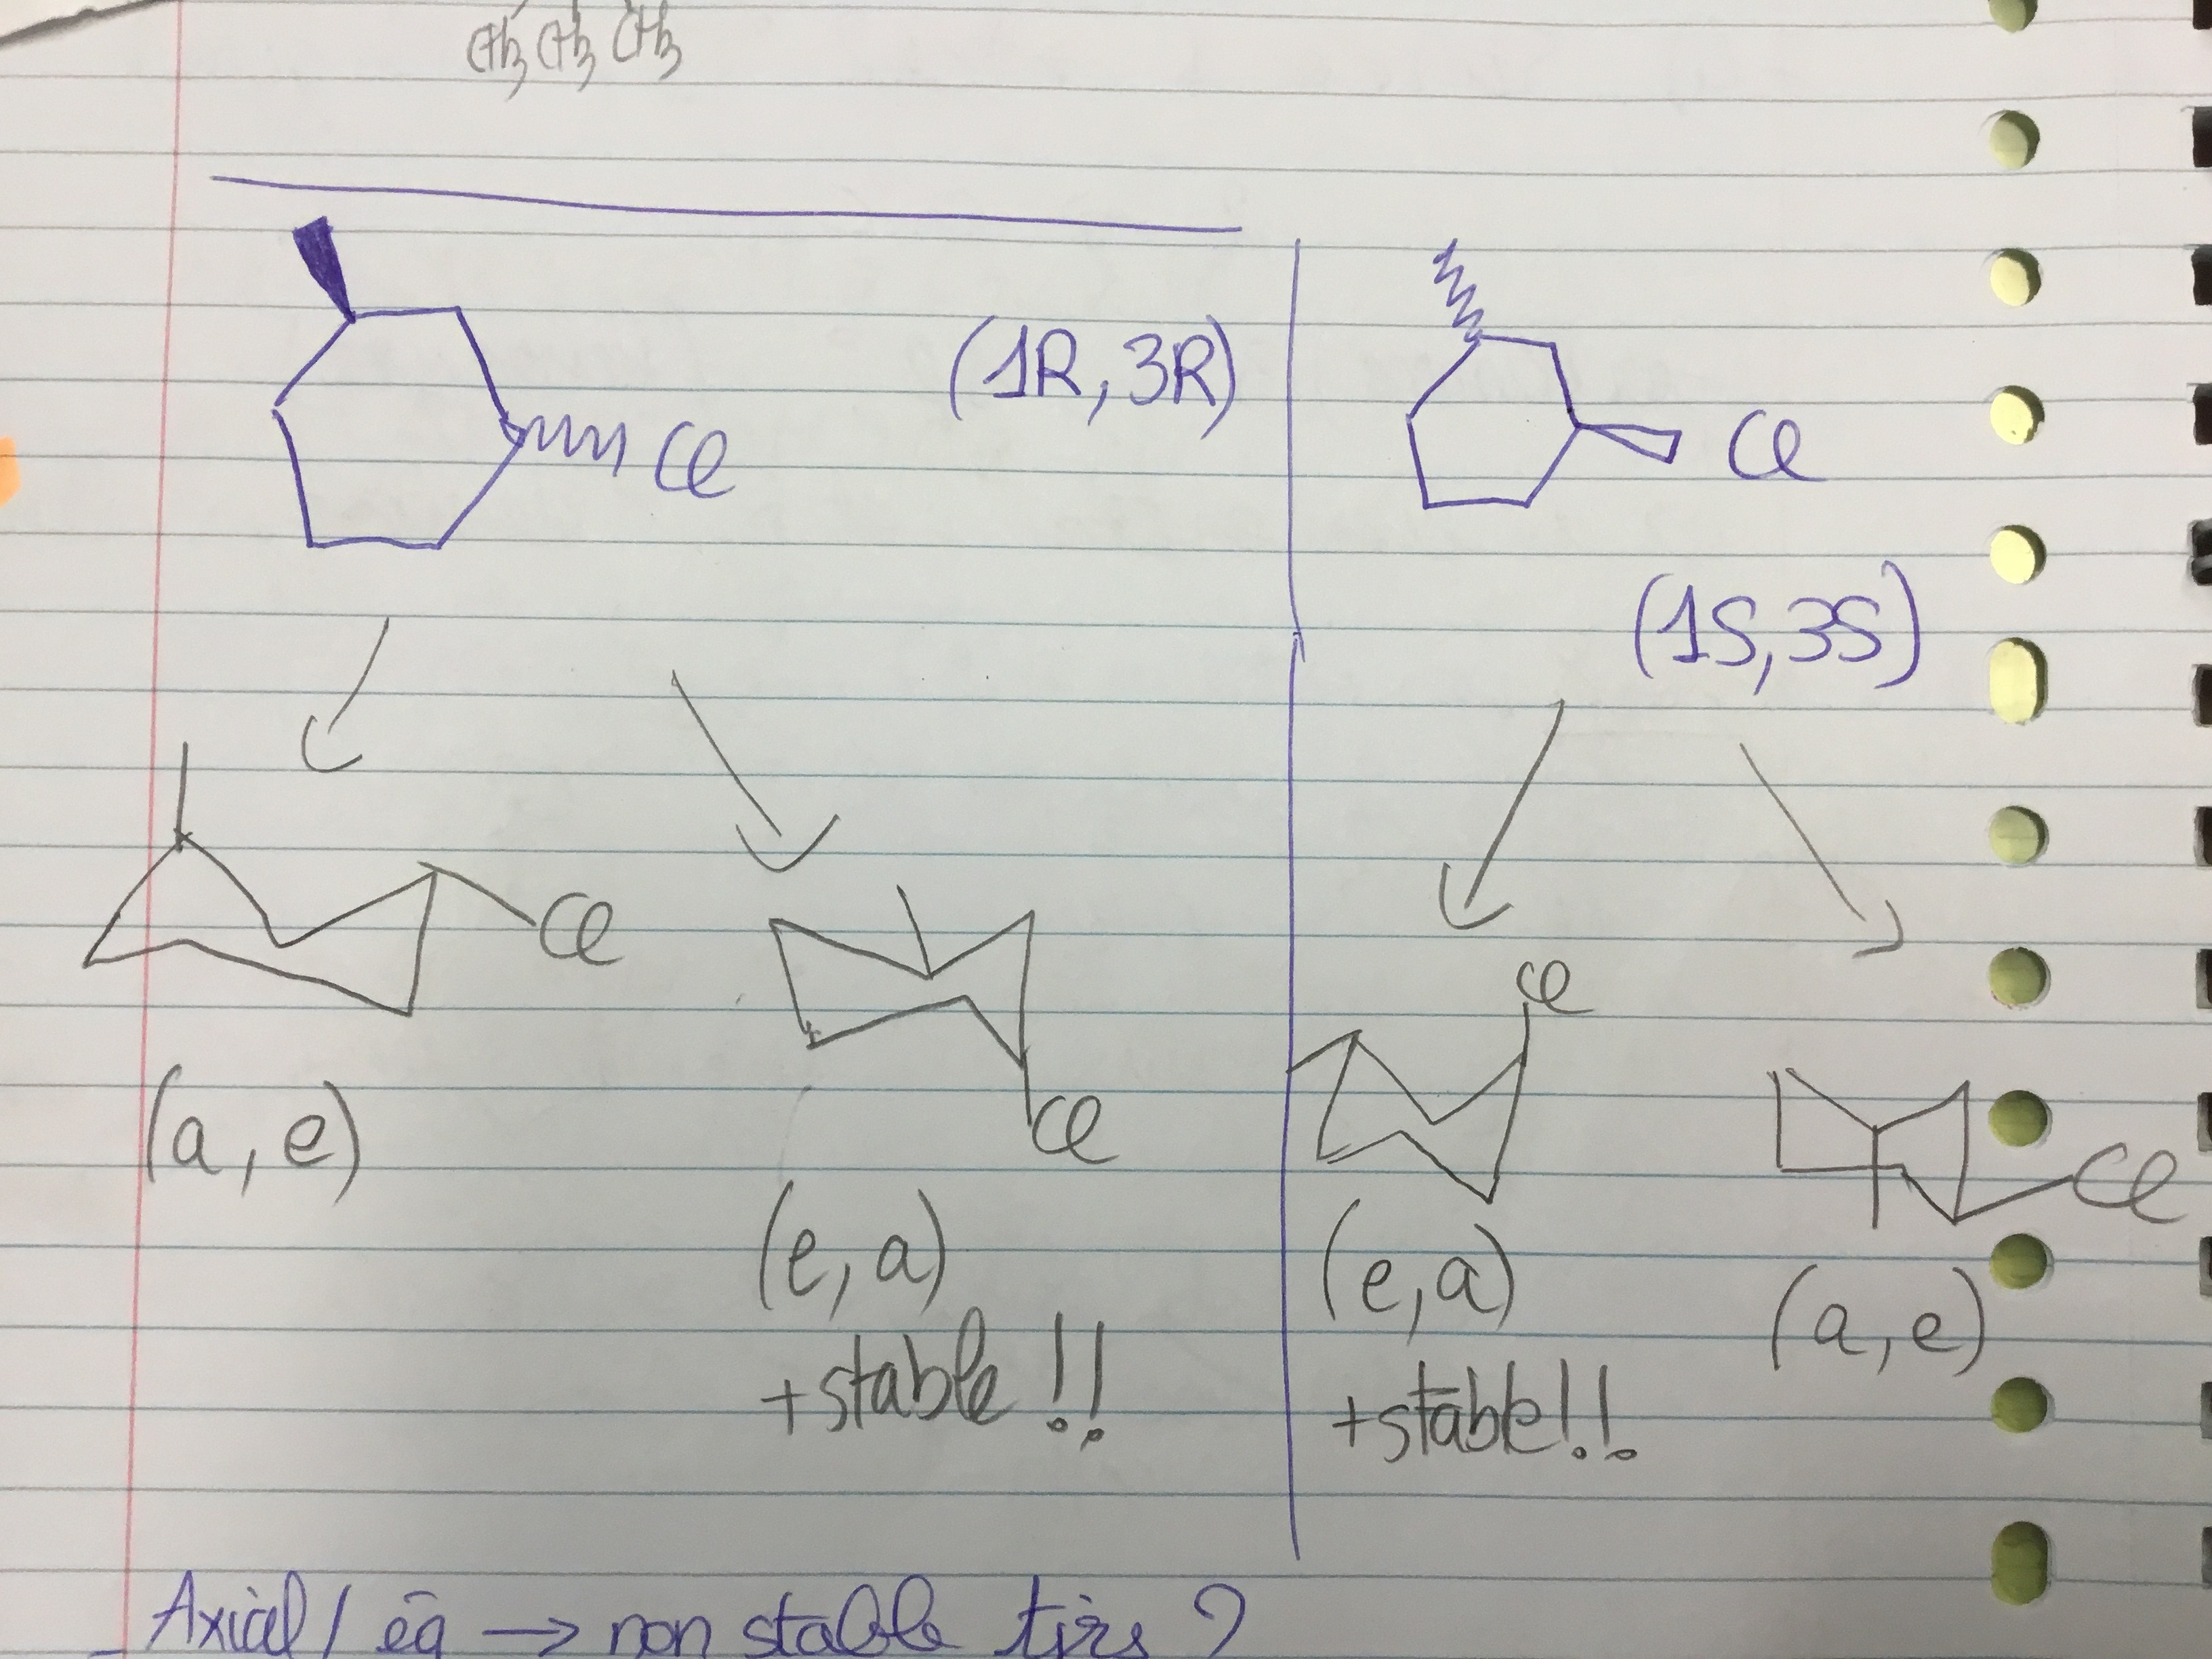 CH3 CH3 CH3
(1R, 3R)
Cl
Cl
(1S, 3S)
Cl
Cl
Cl
Cl
(a, e)
(e, a)
+stable !!
(e, a)
+stable!!
(a, e)
Axial / éq → non stable